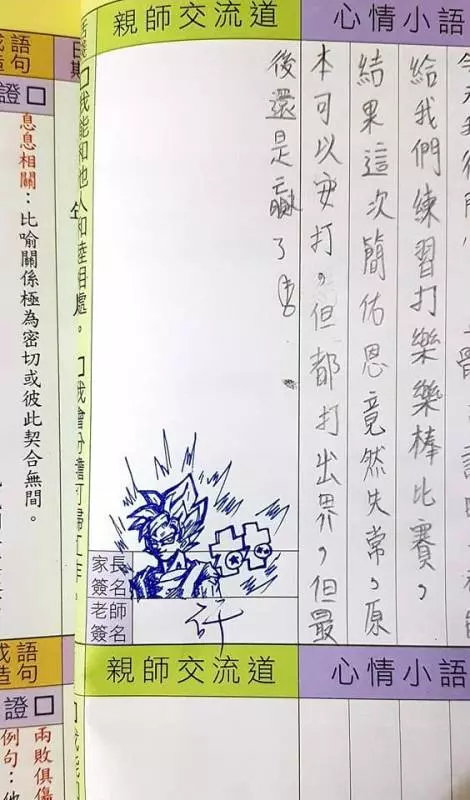 心情小語
給我們練習打樂樂棒比賽，
結果這次簡佑恩竟然失常，原
本可以安打，但都打出界，但最
後還是贏了
親師交流道
家長
簽名
老師
簽名
許
日期
我能和他人和睦相處。
語
句
證
息息相關：比喻關係極為密切或彼此契合無間。
心情小語
親師交流道
語
句
證
兩敗俱傷
例句：他